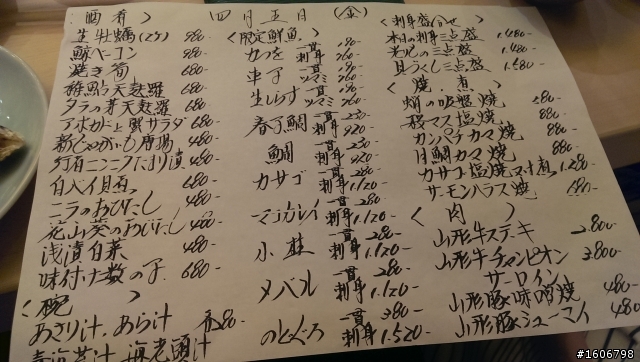 〈酒肴〉
四月五日（金）
生牡蠣(2ケ) 980-
鯨ベーコン 980-
焼き筍 680-
稚鮎天麩羅 680-
タラの芽天麩羅 680-
アボカドと蟹サラダ 680-
新じゃがいも唐揚 480-
行者ニンニクたまり漬 480-
白バイ貝煮 680-
ニラのおひたし 480-
花山葵のおひたし 480-
浅漬白菜 480-
味付け数の子 680-
〈椀〉
あさり汁、あら汁 各280-
海老頭汁
〈限定鮮魚〉
かつを 一貫 190-
刺身 960-
ツマミ 960-
生しらす 一貫 190-
ツマミ 960-
春子鯛 一貫 230-
刺身 920-
鯛 一貫 230-
刺身 920-
カサゴ 一貫 280-
刺身 1.120-
マコガレイ 一貫 280-
刺身 1.120-
一貫 280-
刺身 1.120-
メバル 一貫 280-
刺身 1.120-
のどぐろ 一貫 380-
刺身 1.520-
〈刺身盛合せ〉
本日の刺身三点盛 1.480-
光もの三点盛 1.480-
貝づくし三点盛 1.580-
〈焼・煮〉
蛸の吸盤焼 580-
桜マス塩焼 880-
カンパチカマ焼 880-
目鯛カマ焼 880-
カサゴ塩焼又は煮 1.280-
サーモンハラス焼 680-
〈肉〉
山形牛ステーキ 2.800-
山形牛チャンピオン 3.800-
サーロイン
山形豚味噌焼 480-
山形豚シューマイ 480-
#1606798